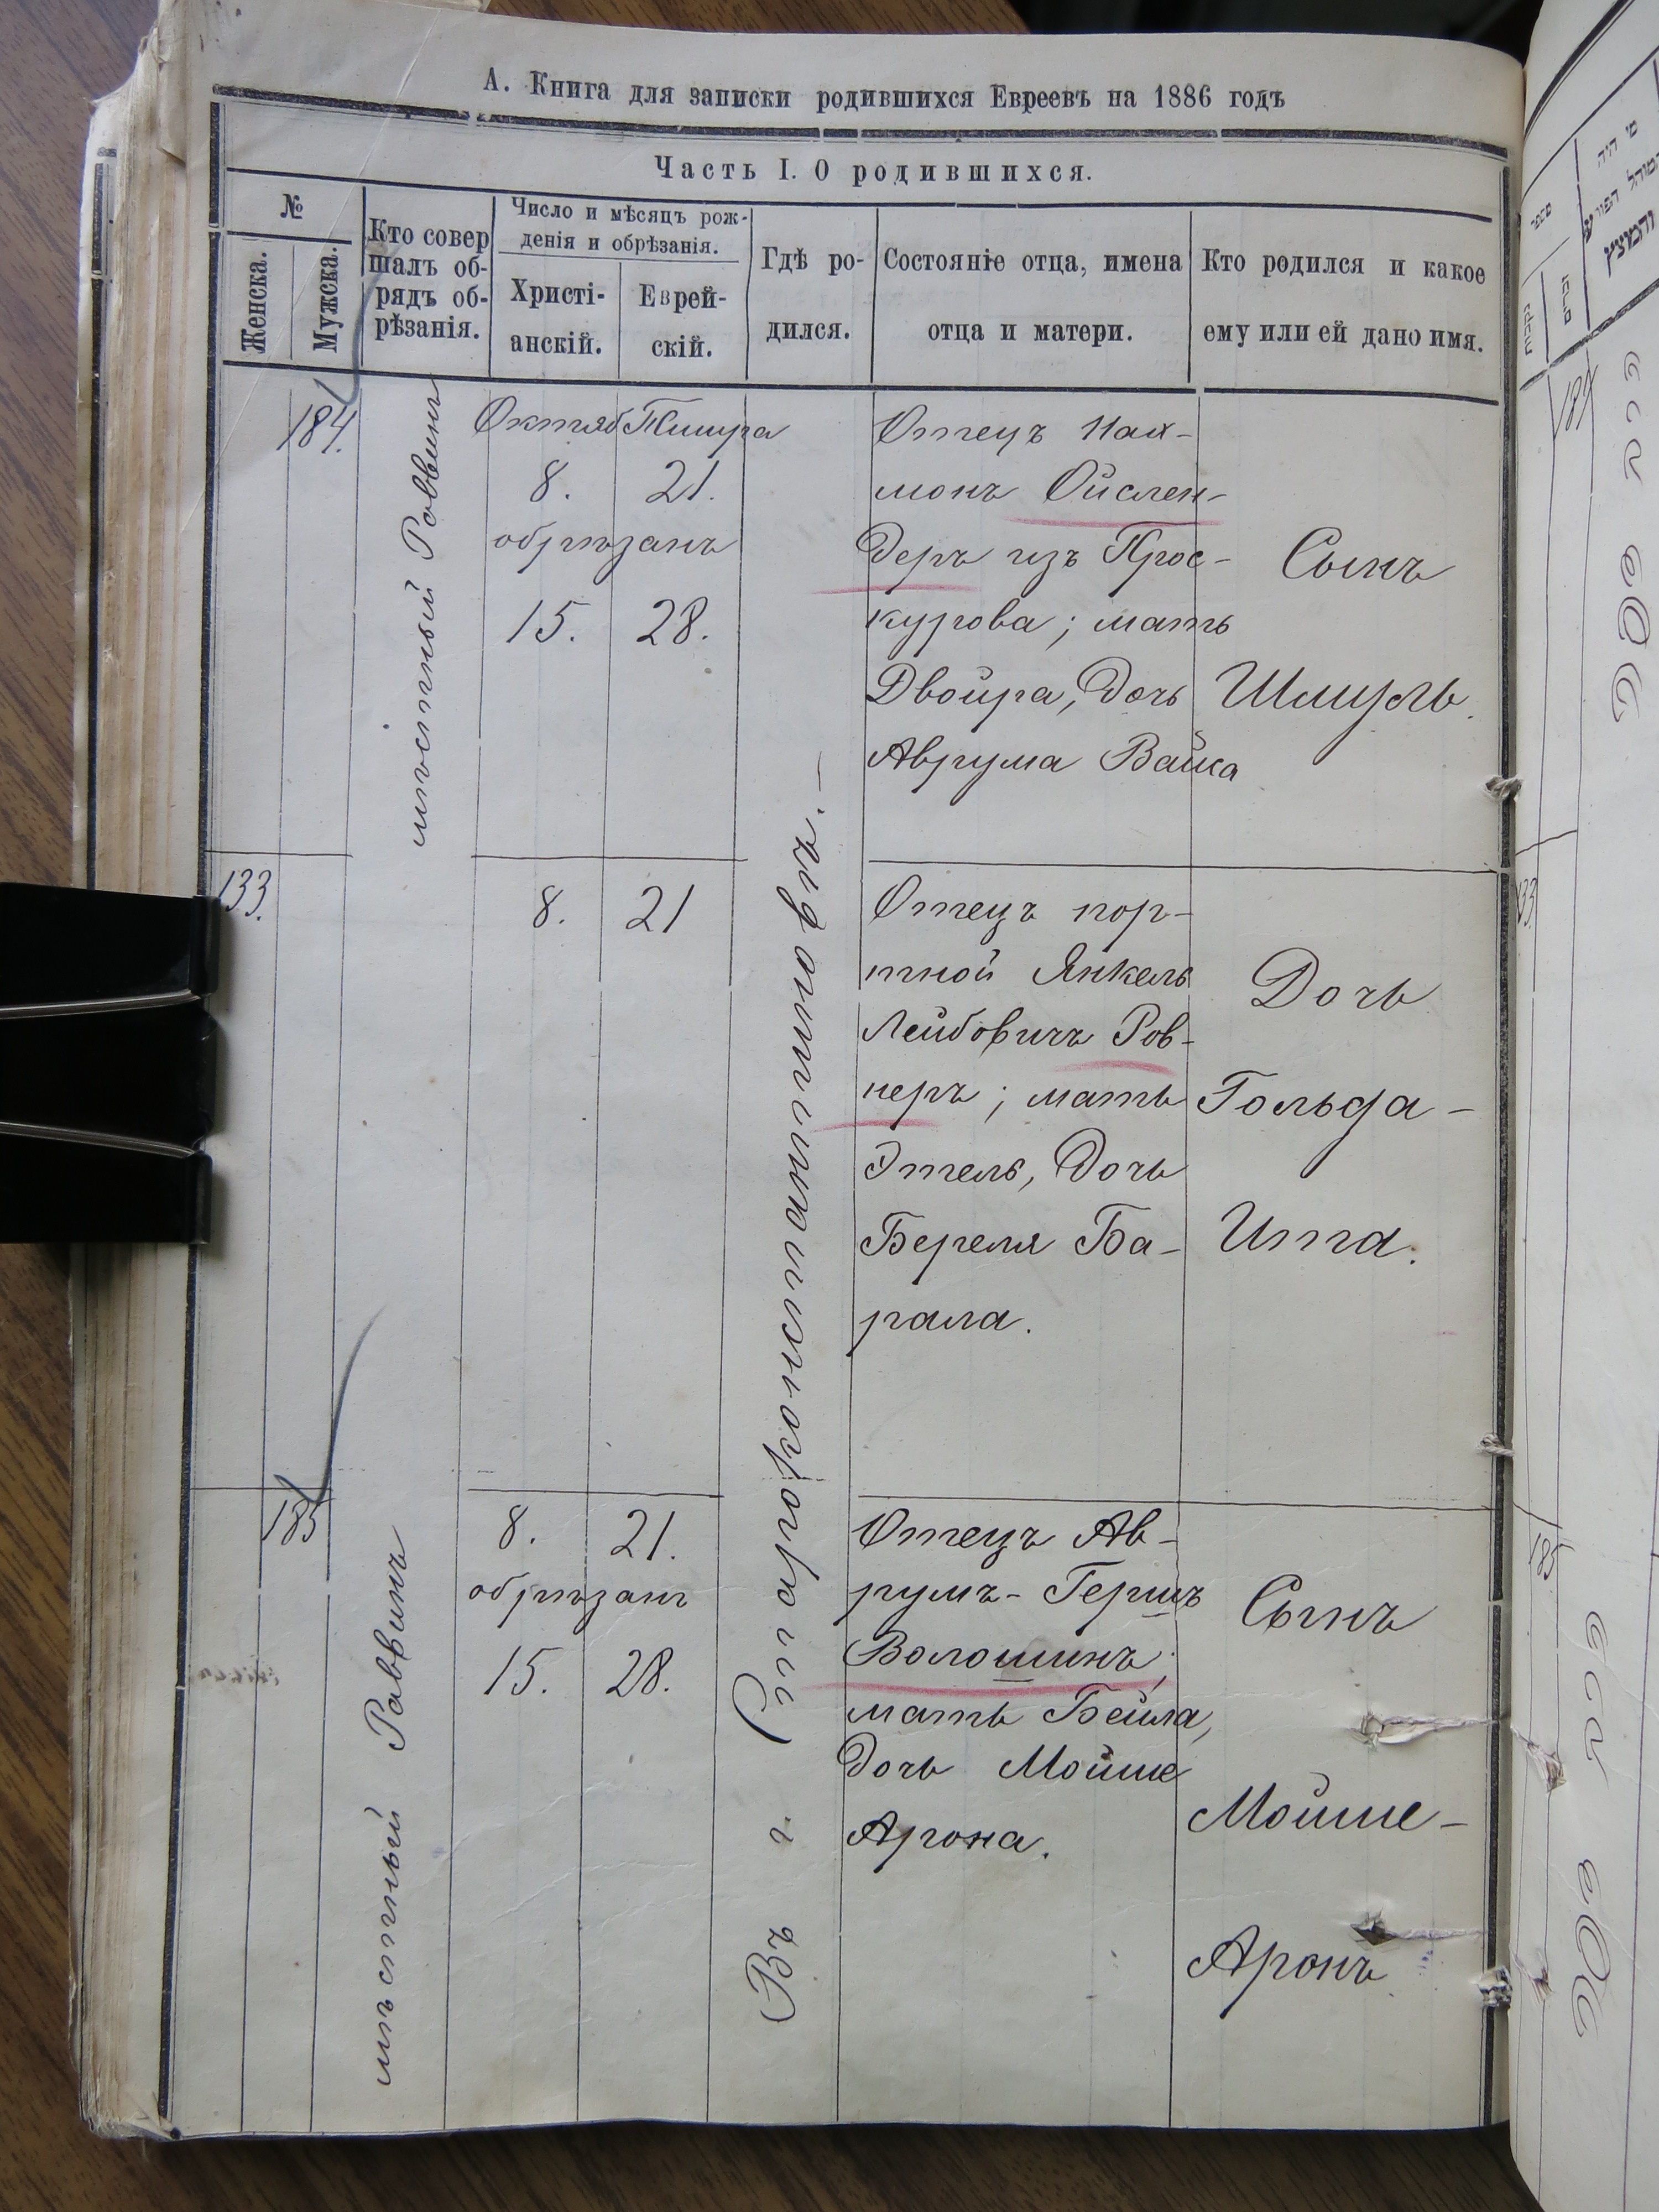 А. Книга для записки родившихся Евреевъ на 1886 годъ
Часть I. О родившихся.
№
Женска.
Мужска.
Кто совер
шалъ об-
рядъ об-
рѣзанія.
Число и мѣсяцъ рож-
денія и обрѣзанія.
Христі-
анскій.
Еврей-
скій.
Гдѣ ро-
дился.
Состояніе отца, имена
отца и матери.
Кто родился и какое
ему или ей дано имя.
184.
мѣстный Раввинъ
Октяб Тишра
8. 21.
обрѣзанъ
15. 28.
Въ г. Староконстантиновѣ.
Отецъ Нах-
монъ Ойслен-
деръ изъ Прос-
курова; мать
Двойра, дочь
Аврума Вайса
Сынъ
Шмуль.
133.
8. 21
Отецъ пор-
тной Янкель
Лейбовичъ Ров-
неръ; мать
Этель, дочь
Береля Ба-
рала.
Дочь
Гольда-
Ита.
185
мѣстный Раввинъ
8. 21.
обрѣзанъ
15. 28.
Отецъ Ав-
румъ-Гершъ
Волошинъ;
мать Бейла,
дочь Мойше
Арона.
Сынъ
Мойше-
Аронъ